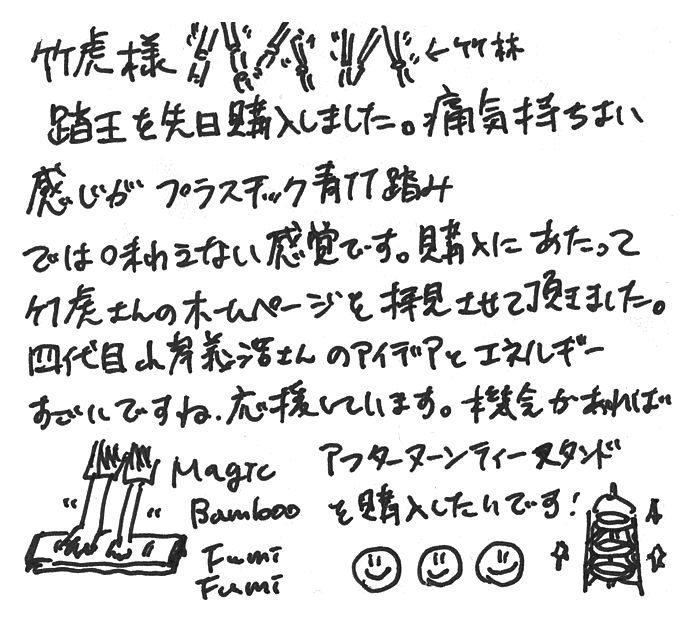 竹虎様 ←竹林
踏王を先日購入しました。痛気持ちよい
感じが プラスチック青竹踏み
では味わえない感覚です。購入にあたって
竹虎さんのホームページを拝見させて頂きました。
四代目山岸義浩さんのアイデアとエネルギー
すごいですね。応援しています。機会があれば
アフターヌーンティースタンド
を購入したいです!
Magic
Bamboo
Fumi
Fumi